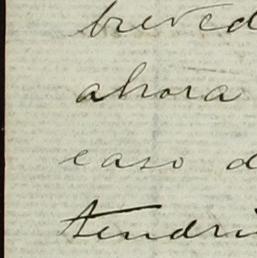 breved
ahora
caso d
tendri